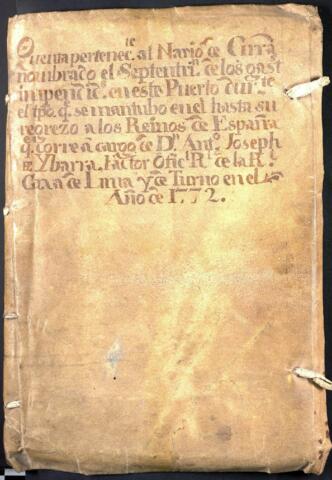 Quenta pertenec.te al Navio de Gurra
nombrado el Septentri.n de los gast.s
impendi.s en este Puerto dur.te
el tpo. q.e se mantubo en el hasta su
regrezo a los Reinos de España
q.e corre a cargo de D.n Ant.o Joseph
de Ybarra, Factor Ofic.l R.l de la R.l
Caxa de Lima y de Turno en el
Año de 1772.